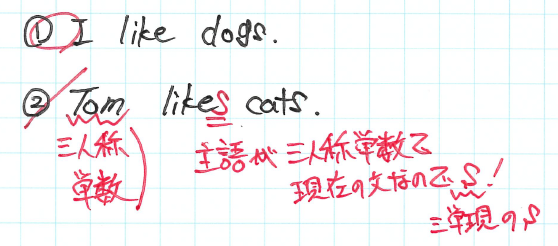 ① I like dogs.
② Tom likes cats.
三人称
単数
主語が三人称単数で
現在の文なのでS!
三単現のS